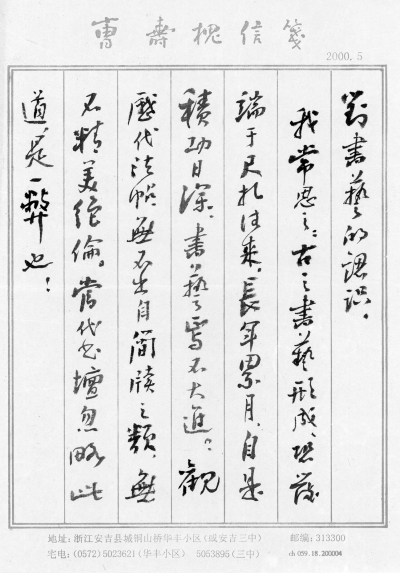 曹寿槐信笺
2000.5
對書藝的認识。
我常思之：古之書藝形成，恐發
端于尺札往来，長年累月，自是
積功日深，書藝焉不大进。觀
歷代法帖，無不出自簡牘之類，無
不精美绝倫。當代书壇忽略此
道，是一弊也！
地址:浙江安吉县城铜山桥华丰小区(或安吉三中) 邮编:313300
宅电:(0572)5023621(华丰小区) 5053895(三中) ch 059.18.200004